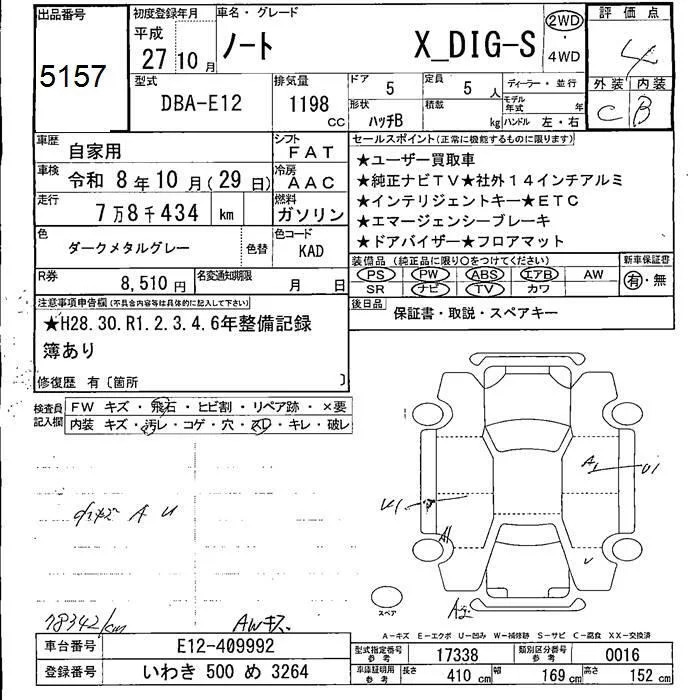 出品番号
5157
初度登録年月
平成
27年10月
車名・グレード
ノート X_DIG-S
2WD
・
4WD
評価点
4
外装 内装
C B
型式
DBA-E12
排気量
1198
CC
ドア
5
定員
5人
ディーラー・並行
形状
ハッチB
積載
kg
モデル年式
年
ハンドル 左・右
車歴
自家用
シフト
FAT
車検
令和 8年10月(29日)
冷房
AAC
走行
7万8千434 km
燃料
ガソリン
色
ダークメタルグレー
色替
色コード
KAD
R券
8,510円
名変通知期限
月 日
セールスポイント(正常に機能するものに限ります)
★ユーザー買取車
★純正ナビTV★社外14インチアルミ
★インテリジェントキー★ETC
★エマージェンシーブレーキ
★ドアバイザー★フロアマット
装備品(純正品に限り○をつけてください)
新車保証書
PS PW ABS エアB AW
SR ナビ TV カワ
有・無
後日品
保証書・取説・スペアキー
注意事項申告欄(不具合内容等は具体的に記入して下さい)
★H28.30.R1.2.3.4.6年整備記録
簿あり
修復歴 有〔箇所 〕
検査員記入欄
FW キズ・飛石・ヒビ割・リペア跡・×要
内装 キズ・汚レ・コゲ・穴・スレ・キレ・破レ
A U
78342km
AWキズ
A1
U1
A2
スペア
A-キズ E-エクボ U-凹み W-補修跡 S-サビ C-腐食 XX-交換済
車台番号
E12-409992
登録番号
いわき 500 め 3264
型式指定番号
参考
17338
類別区分番号
参考
0016
車庫証明用
参考
長さ
410 cm
幅
169 cm
高さ
152 cm